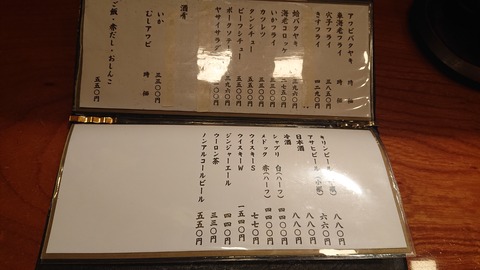 アワビバタヤキ 時価
車海老フライ 時価
穴子フライ 三八五〇円
きすフライ 四二九〇円
蛤バタヤキ
海老コロッケ
いかフライ 三三〇〇円
カツレツ 三三〇〇円
タンシチュー
ビーフシチュー
ポークソテー
ヤサイサラダ
酒肴
いか 三三〇〇円
むしアワビ 時価
ご飯・赤だし・おしんこ 五五〇円
キリンビール 八八〇円
アサヒビール(小瓶) 六六〇円
日本酒 八八〇円
冷酒 八八〇円
シャブリ 白(ハーフ) 四四〇〇円
メドック 赤(ハーフ) 四四〇〇円
ウイスキーS 七七〇円
ウイスキーW 一五四〇円
ジンジャーエール 四四〇円
ウーロン茶 三三〇円
ノンアルコールビール 五五〇円